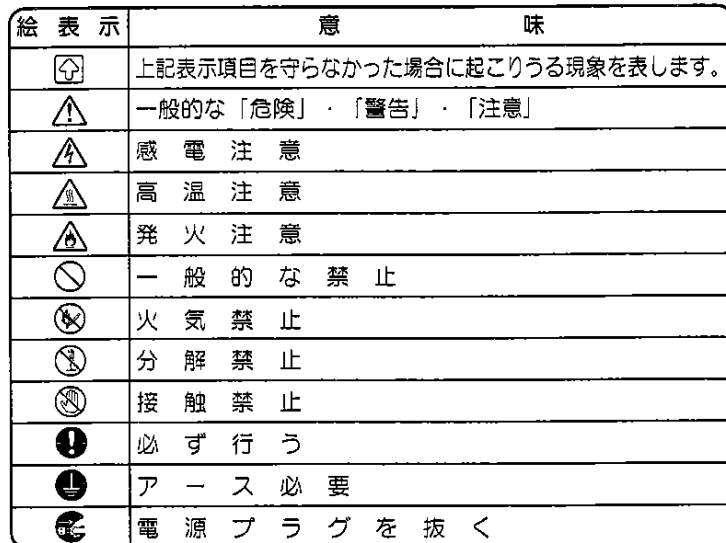 絵表示 意味
上記表示項目を守らなかった場合に起こりうる現象を表します。
一般的な「危険」・「警告」・「注意」
感電注意
高温注意
発火注意
一般的な禁止
火気禁止
分解禁止
接触禁止
必ず行う
アース必要
電源プラグを抜く